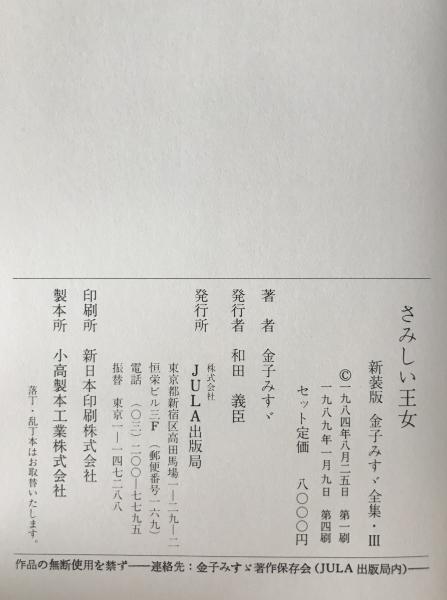 さみしい王女
新装版 金子みすゞ全集・Ⅲ
©一九八四年八月二五日 第一刷
一九八九年一月九日 第四刷
セット定価 八〇〇〇円
著者 金子みすゞ
発行者 和田義臣
発行所 株式会社 JULA出版局
東京都新宿区高田馬場一―二九―二
恒栄ビル三F (郵便番号一六九)
電話 (〇三)二〇〇―七七九五
振替 東京一―一四七二八八
印刷所 新日本印刷株式会社
製本所 小高製本工業株式会社
落丁・乱丁本はお取替いたします。
作品の無断使用を禁ず――連絡先:金子みすゞ著作保存会(JULA出版局内)――